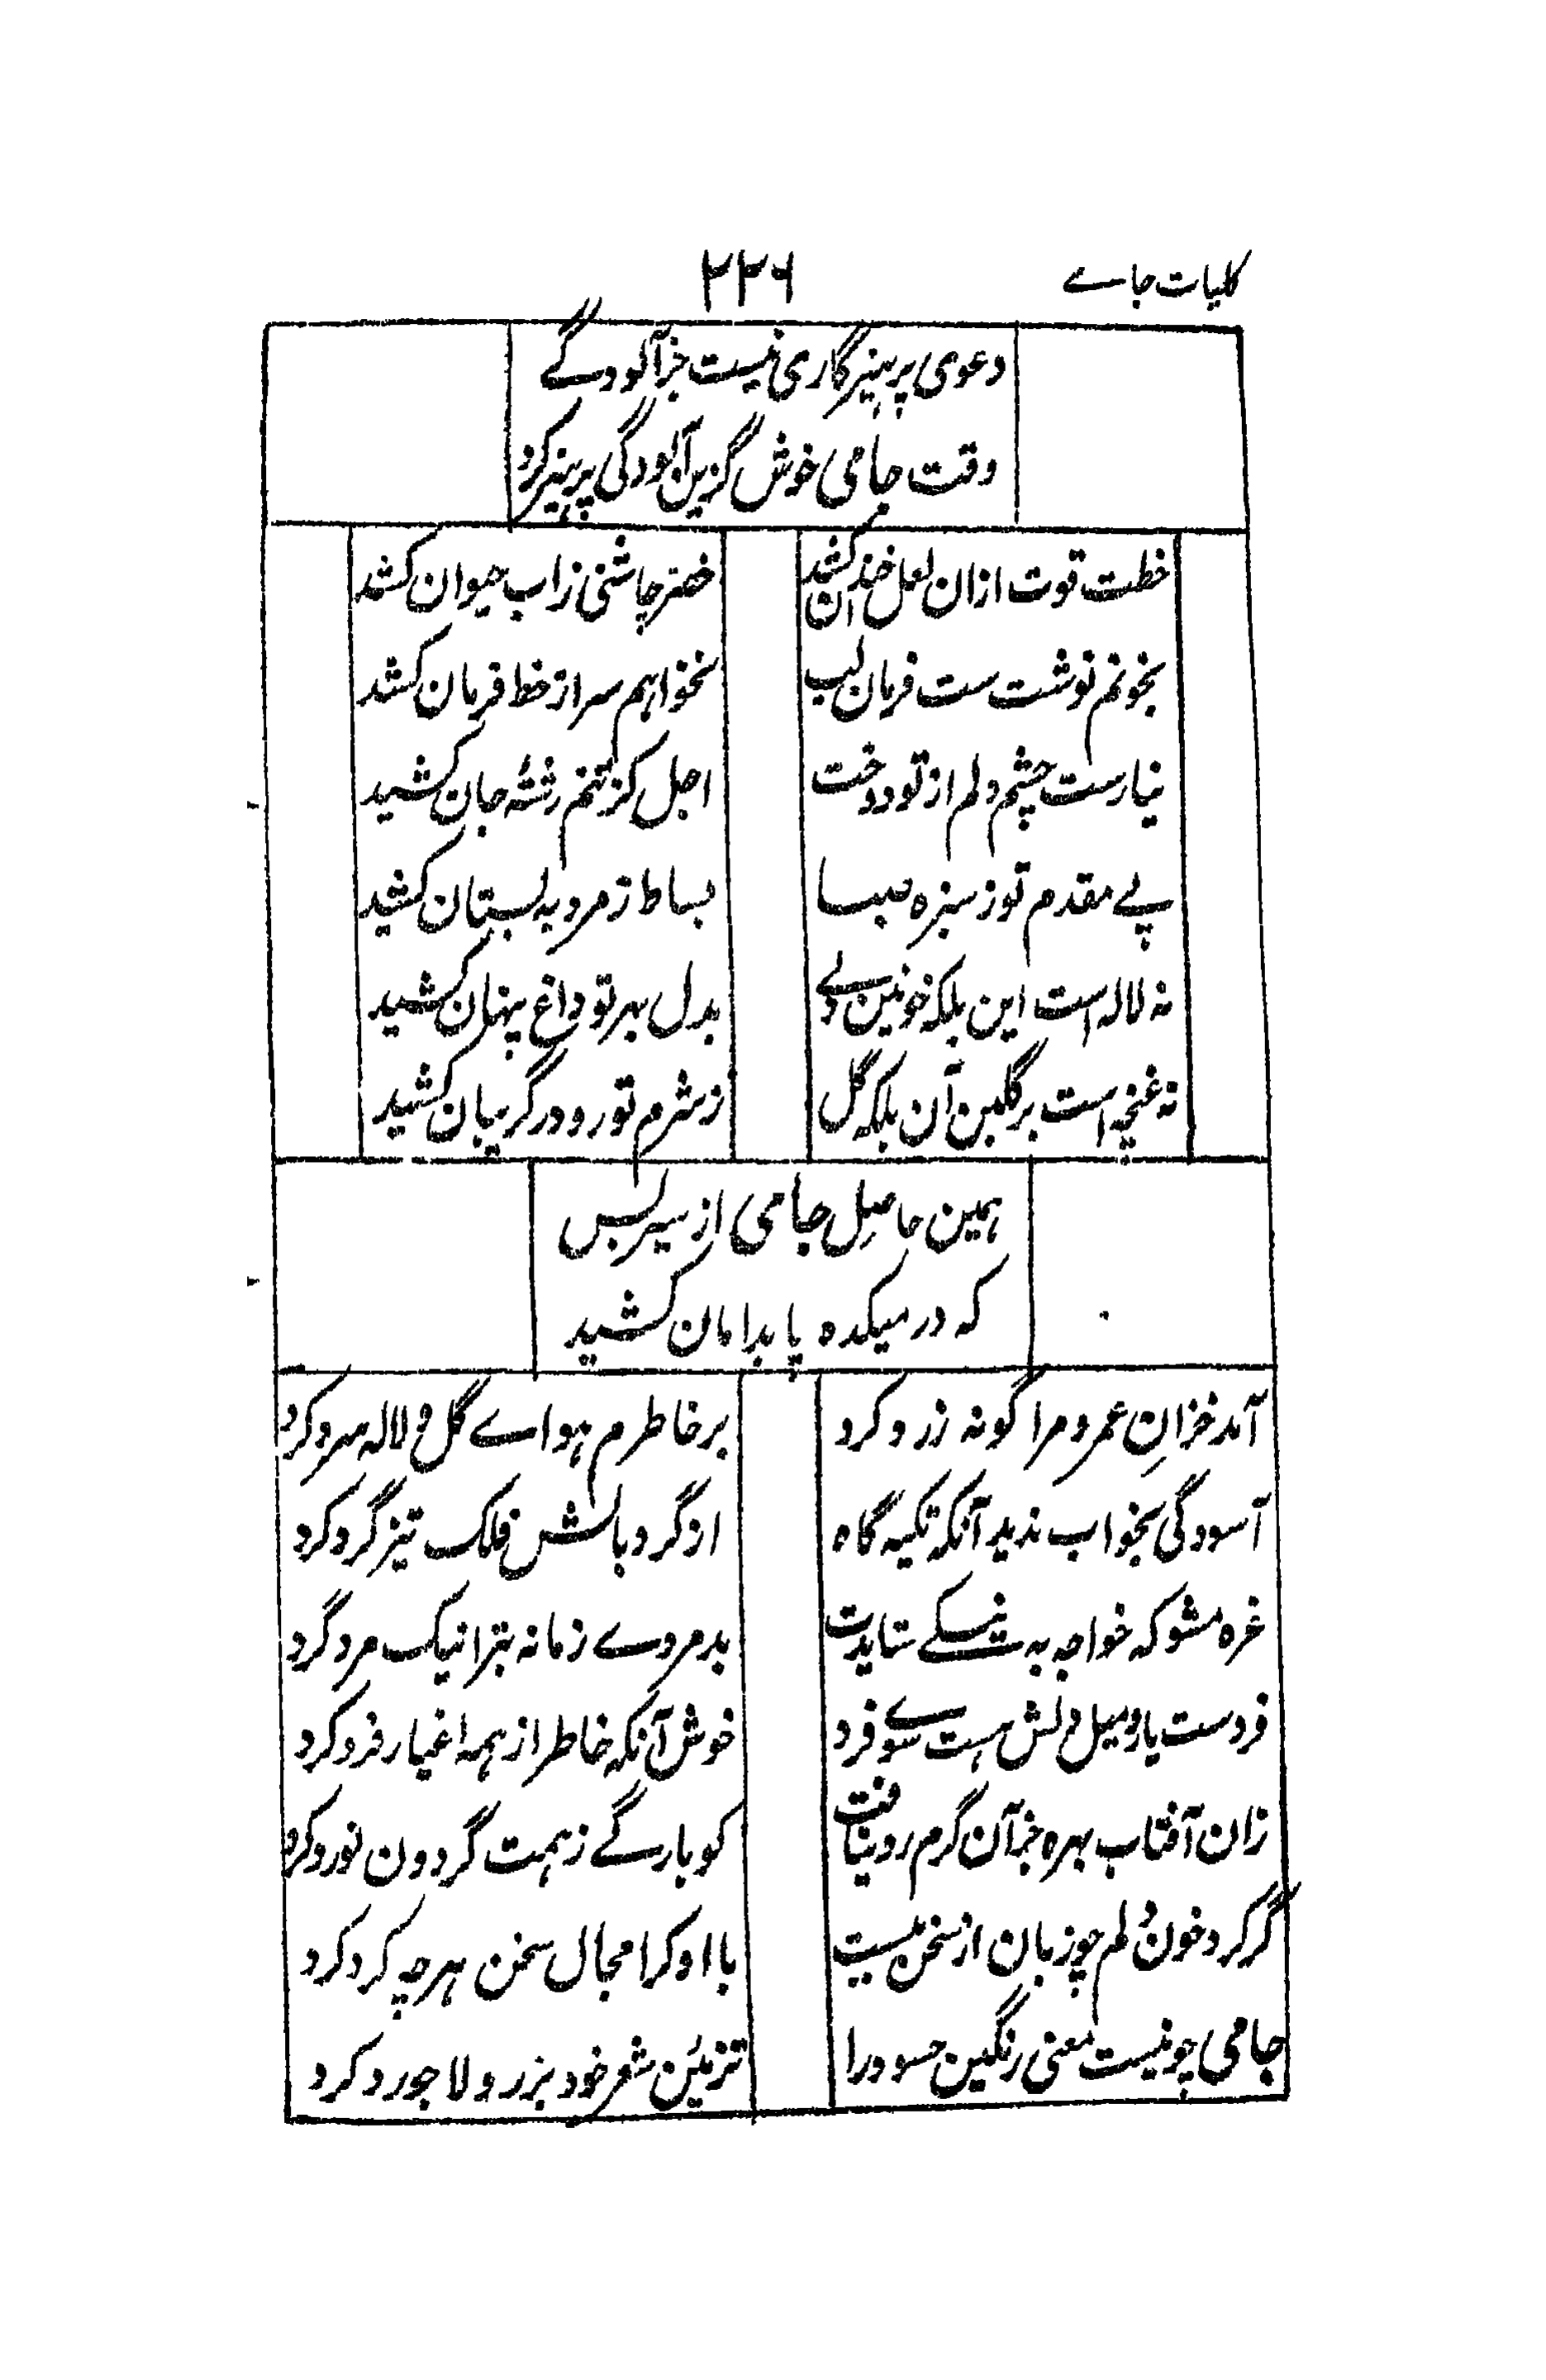 کلیات جامے
۲۲۶
دعوی پرہیزگاری نیست جز آلودگے
وقت جامی خوش گزین آلودگی پرہیز کرد
خطت قوت ازان لعل خندان کشد
خضر چاشنی ز اب حیوان کشد
بخونم نوشت ست فرمان لب
نخواہم سر از خط فرمان کشد
نیارست چشم دلم از تو دوخت
اجل کز تنم رشتۂ جان کشید
پے مقدم تو ز سبزہ صبا
بساط زمرد بہ بستان کشید
نہ لالہ است این بلکہ خونین دلے
بدل بہر تو داغ پنہان کشید
نہ غنچہ است بر گلبن آن بلکہ گل
ز شرم تو رو در گریبان کشید
ہمین حاصلِ جامی از سیر بس
کہ در میکدہ پا بدامان کشید
آمد خزانِ عمر و مرا گونہ زرد کرد
بر خاطرم ہواے گل و لالہ سرد کرد
آسودگی بخواب ندید آنکہ تکیہ گاہ
از گرد بالش فلک تیز گرد کرد
غرہ مشو کہ خواجہ بہ نیکے ستایدت
بد مردے زمانہ بترا نیک مرد کرد
فردست یار و میل دلش ہست سوے فرد
خوش آنکہ خاطر از ہمہ اغیار فرد کرد
زان آفتاب بہرہ جز آن گرم رو نیافت
کو بارگے ز ہمت گردون نورد کرد
گر کرد خون دلم چو زبان از سخن ببست
با او کرا مجال سخن ہرچہ کرد کرد
جامی چو نیست معنی رنگین حسود را
تزئین شعر خود بزر و لاجورد کرد